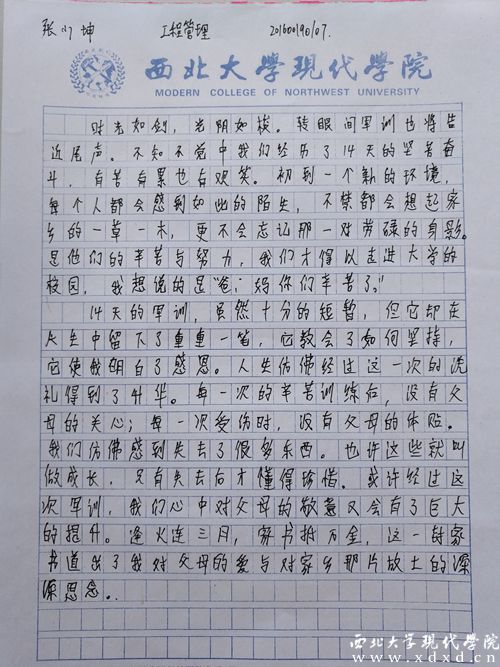 张小坤 工程管理 201600190107.
西北大学现代学院
MODERN COLLEGE OF NORTHWEST UNIVERSITY
时光如剑，光阴如梭。转眼间军训也将告
近尾声。不知不觉中我们经历了14天的坚苦奋
斗，有苦有累也有欢笑。初到一个新的环境，
每个人都会感到如此的陌生，不禁都会想起家
乡的一草一木，更不会忘记那一对劳碌的身影。
是他们的辛苦与努力，我们才得以走进大学的
校园，我想说的是“爸，妈你们辛苦了。”
14天的军训，虽然十分的短暂，但它却在
人生中留下了重重一笔，它教会了如何坚持，
它使我明白了感恩。人生仿佛经过这一次的洗
礼得到了升华。每一次的辛苦训练后，没有父
母的关心；每一次受伤时，没有父母的体贴。
我们仿佛感到失去了很多东西。也许这些就叫
做成长，只有失去后才懂得珍惜。或许经过这
次军训，我们心中对父母的敬意又会有了巨大
的提升。逢火连三月，家书抵万金，这一封家
书道出了我对父母的爱与对家乡那片故土的深
深思念。
西北大学现代学院
www.xdxd.cn